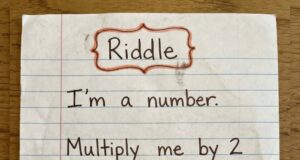 Riddle
I'm a number.
Multiply me by 2